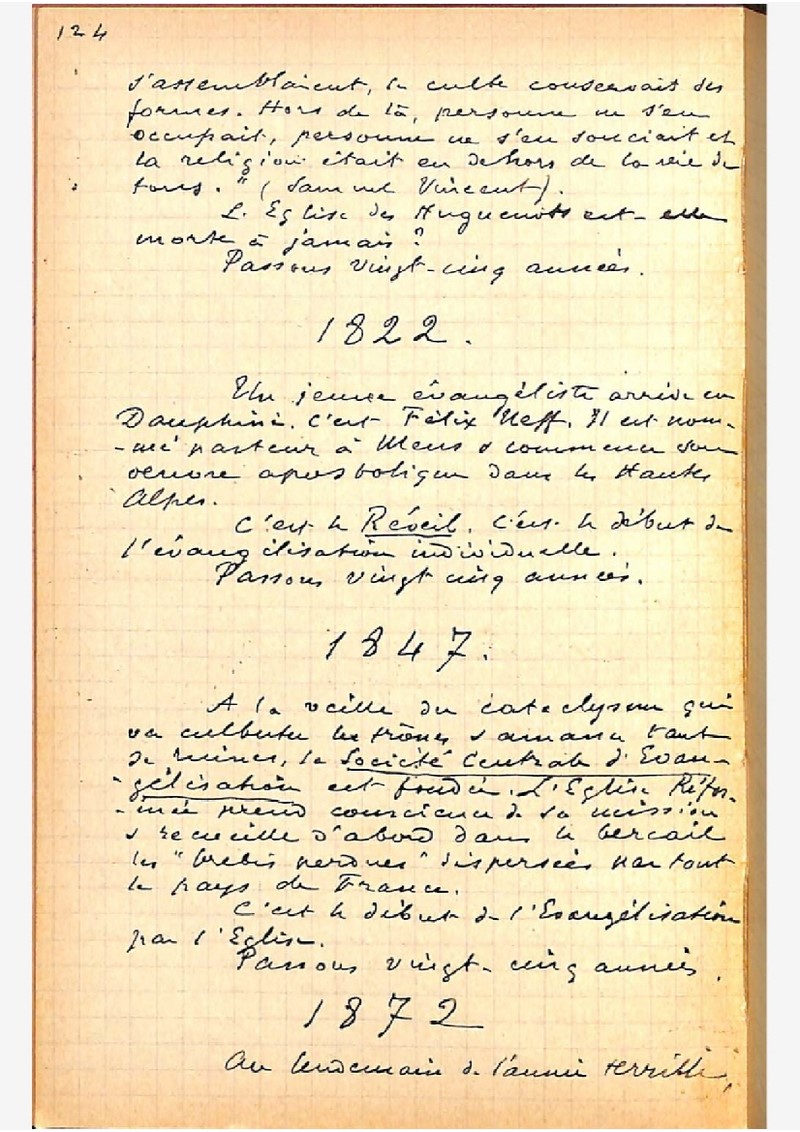 124
s'assemblaient, le culte conservait des
formes. Hors de là, personne ne s'en
occupait, personne ne s'en souciait et
la religion était en dehors de la vie de
tous." (Samuel Vincent).
L'Eglise des Huguenots est-elle
morte à jamais ?
Passons vingt-cinq années.
1822.
Un jeune évangéliste arrive en
Dauphiné. C'est Félix Neff. Il est nom-
-mé pasteur à Mens & commence son
oeuvre apostolique dans les Hautes
Alpes.
C'est le Réveil. C'est le début de
l'évangélisation individuelle.
Passons vingt cinq années.
1847.
A la veille du cataclysme qui
va culbuter les trônes & amasser tant
de ruines, la Société Centrale d'Evan-
-gélisation est fondée. L'Eglise Réfor-
-mée prend conscience de sa mission
& recueille d'abord dans le bercail
les "brebis perdues" dispersées par tout
le pays de France.
C'est le début de l'Evangélisation
par l'Eglise.
Passons vingt-cinq années.
1872
Au lendemain de l'année terrible,